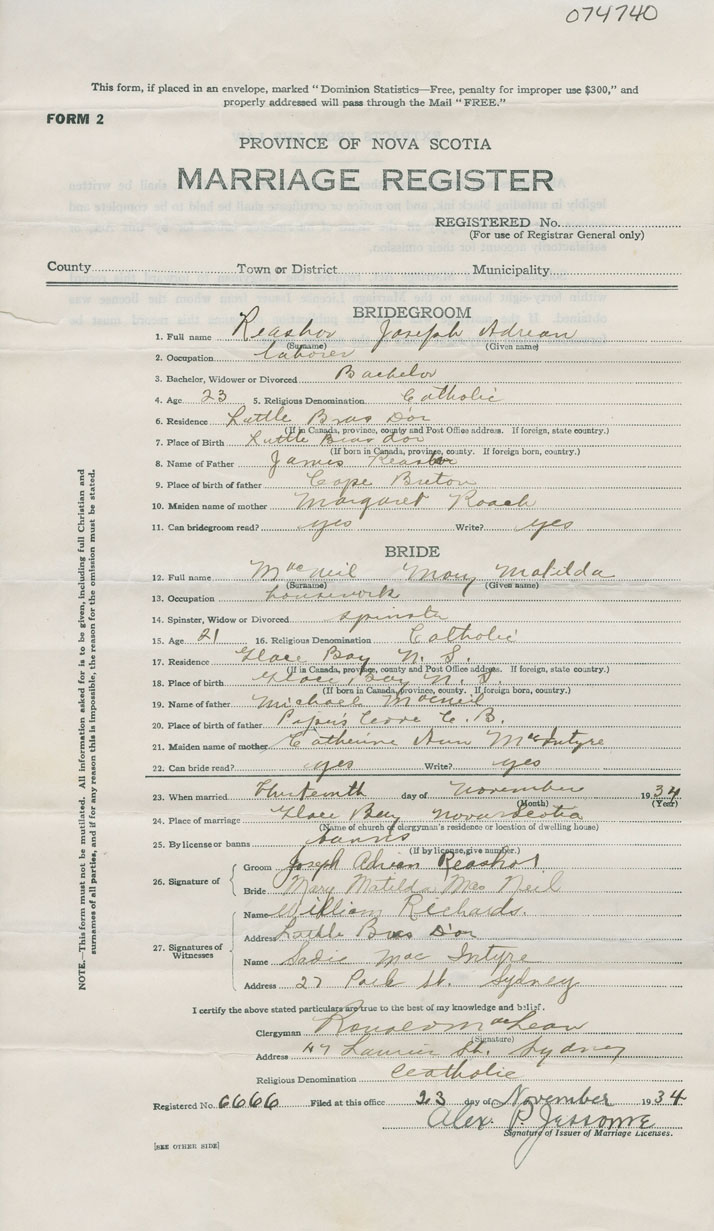 074740
This form, if placed in an envelope, marked "Dominion Statistics—Free, penalty for improper use $300," and
properly addressed will pass through the Mail "FREE."
FORM 2
PROVINCE OF NOVA SCOTIA
MARRIAGE REGISTER
REGISTERED No.
(For use of Registrar General only)
County Town or District Municipality
BRIDEGROOM
1. Full name Reashor Joseph Adrian
(Surname) (Given name)
2. Occupation laborer
3. Bachelor, Widower or Divorced Bachelor
4. Age 23 5. Religious Denomination Catholic
6. Residence Little Bras D'or
(If in Canada, province, county and Post Office address. If foreign, state country.)
7. Place of Birth Little Bras dor
(If born in Canada, province, county. If foreign born, country.)
8. Name of Father James Reashor
9. Place of birth of father Cape Breton
10. Maiden name of mother Margaret Roach
11. Can bridegroom read? yes Write? yes
BRIDE
12. Full name MacNeil Mary Matilda
(Surname) (Given name)
13. Occupation housework
14. Spinster, Widow or Divorced spinster
15. Age 21 16. Religious Denomination Catholic
17. Residence Glace Bay N. S.
(If in Canada, province, county and Post Office address. If foreign, state country.)
18. Place of birth Glace Bay N. S.
(If born in Canada, province, county. If foreign born, country.)
19. Name of father Michael Macneil
20. Place of birth of father Piper's Cove C. B.
21. Maiden name of mother Catherine Ann MacIntyre
22. Can bride read? yes Write? yes
23. When married Thirteenth day of November 1934
(Month) (Year)
24. Place of marriage Glace Bay Nova Scotia
(Name of church of clergyman's residence or location of dwelling house)
25. By license or banns banns
(If by license, give number.)
26. Signature of Groom Joseph Adrian Reashor
Bride Mary Matilda Mac Neil
27. Signatures of Witnesses
Name William Richards.
Address Little Bras D'or
Name Sadie Mac Intyre
Address 27 Park St. Sydney
I certify the above stated particulars are true to the best of my knowledge and belief.
Clergyman Ronald MacLean
(Signature)
Address 47 Laurier St. Sydney
Religious Denomination Catholic
Registered No. 6666 Filed at this office 23 day of November 1934
Alex. P. Jessome
Signature of Issuer of Marriage Licenses.
[SEE OTHER SIDE]
NOTE.—This form must not be mutilated. All information asked for is to be given, including full Christian and
surnames of all parties, and if for any reason this is impossible, the reason for the omission must be stated.